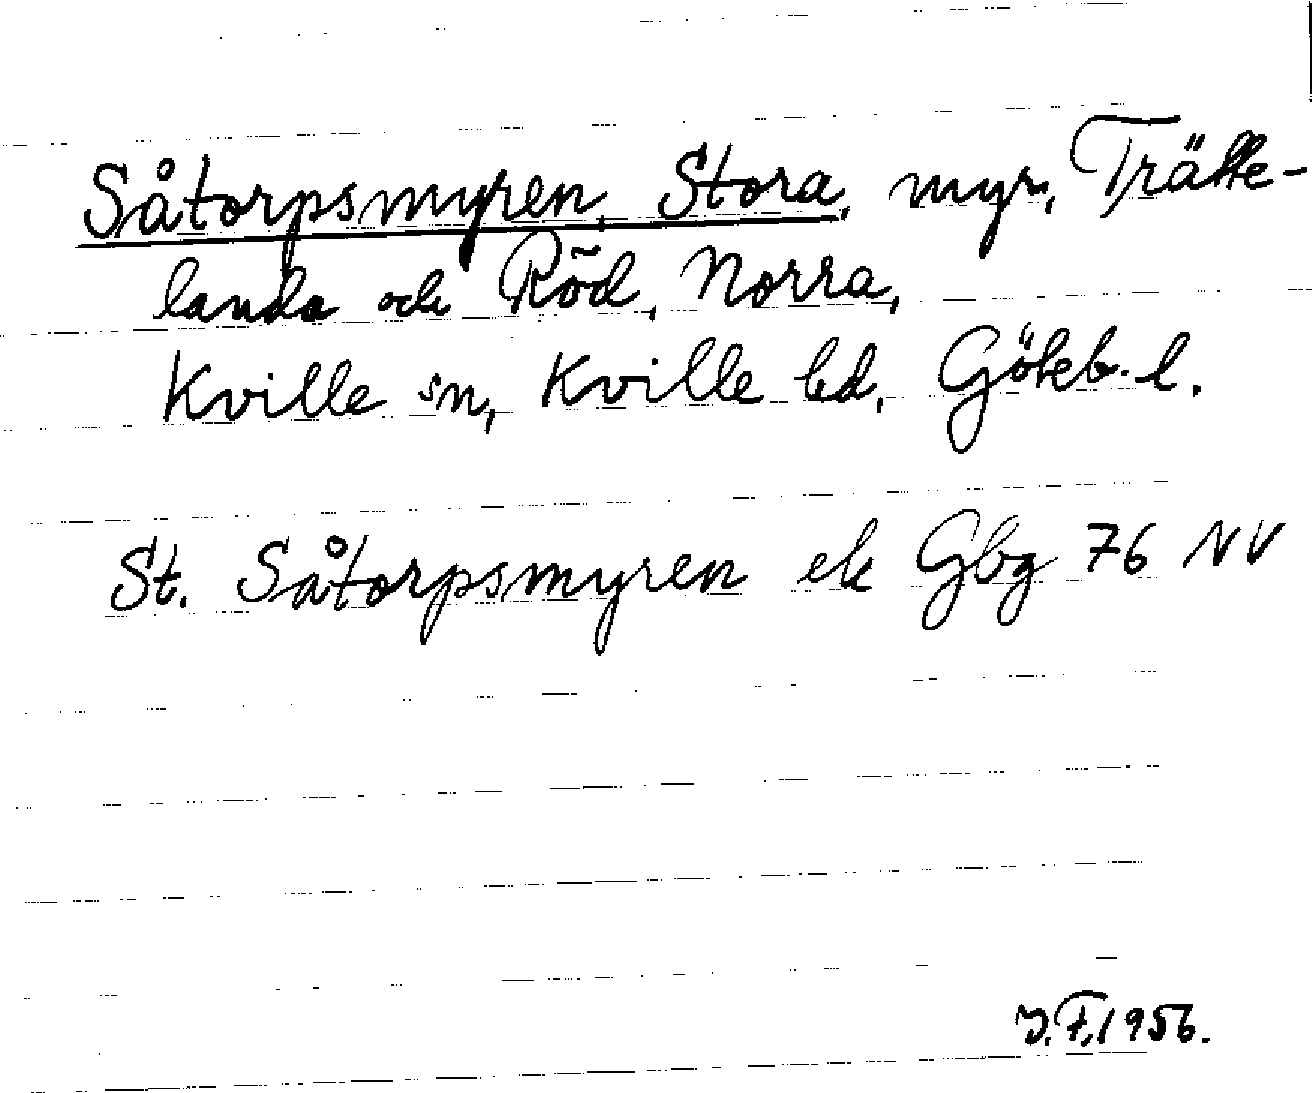 Såtorpsmyren, Stora, myr, Trätte-
landa och Röd, Norra,
Kville sn, Kville hd, Göteb. l.
St. Såtorpsmyren ek Gbg 76 NV
J.F. 1956.